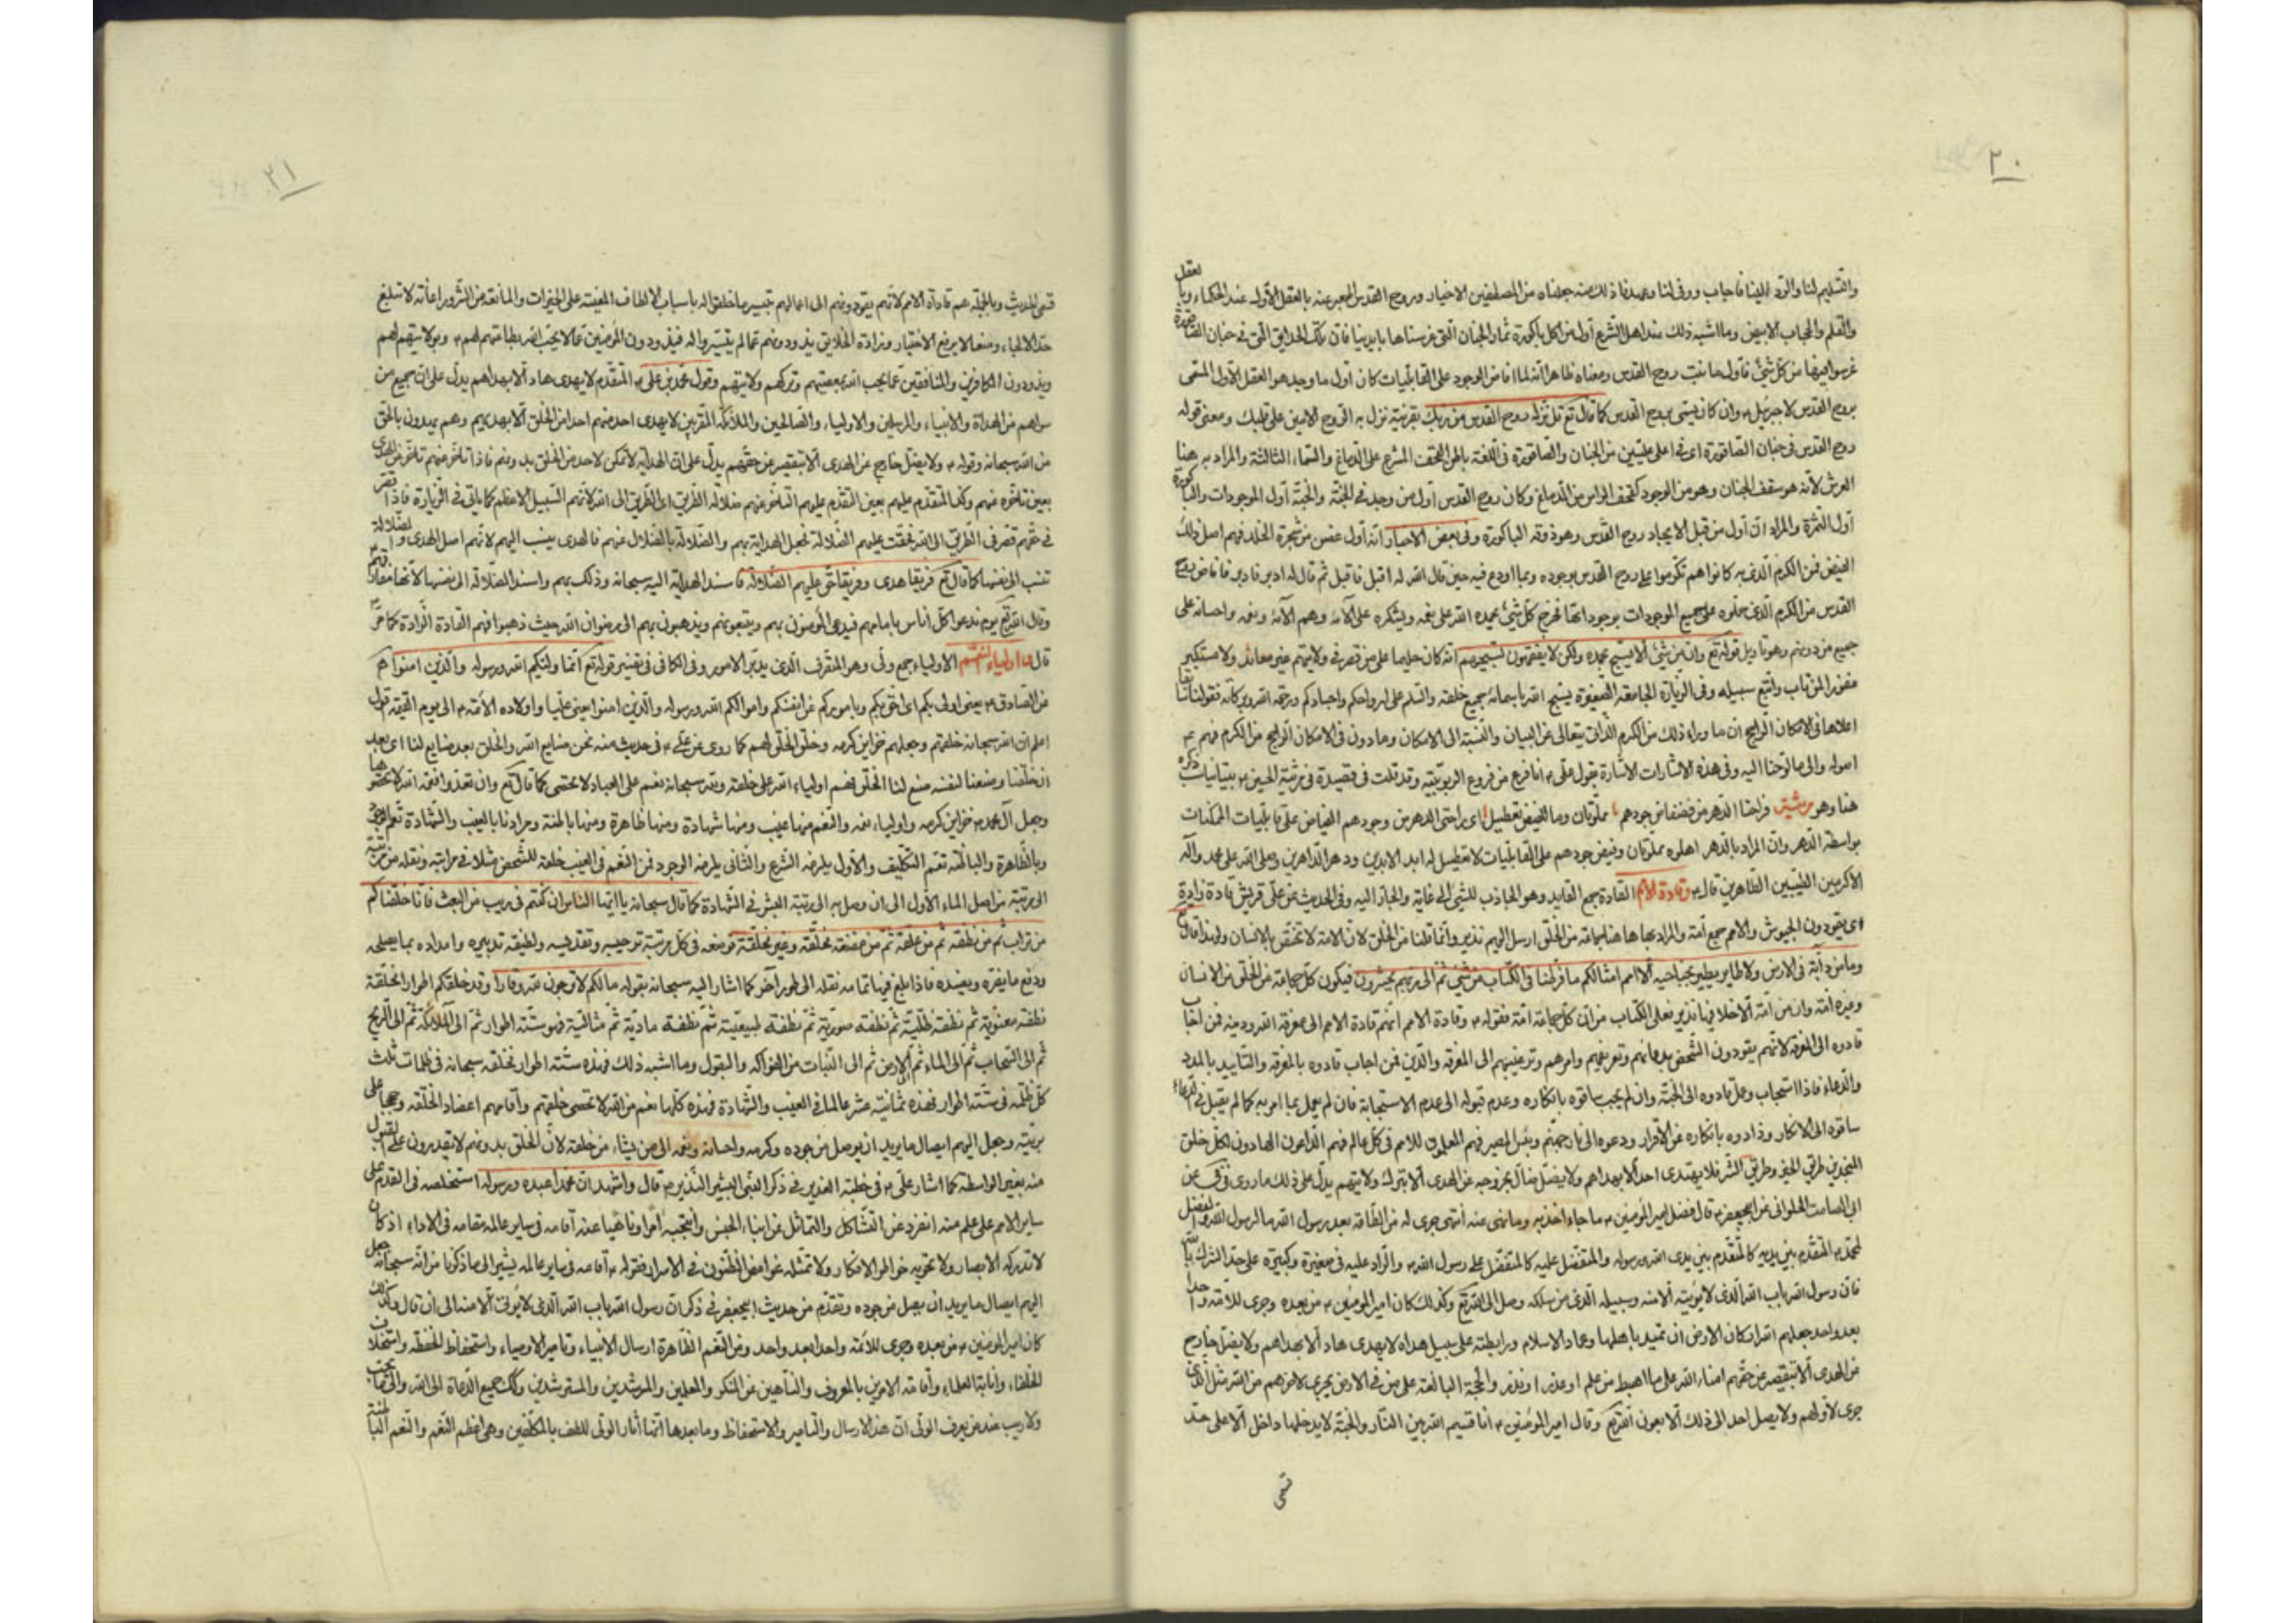 ٢٠
والتسليم لنا والرد الينا فاجاب ووفى لنا وعهدنا ذلك منه جعلناه من المصطفين الاخيار وروح القدس المعبر عنه بالعقل الأول عند الحكماء وبالعقل
والقلم والحجاب الابيض وما اشبه ذلك عند اهل الشرع أول من اكل باكورة ثمار الجنان التى غرسناها بايدينا فان تلك الحدائق التى فى جنان الصاقورة
غرسوا فيها من كل شئ فاول ما نبت روح القدس ومعناه ظاهرا انه لما افاض الوجود على القابليات كان أول ما وجد هو العقل الأول المسمى
بروح القدس لا جبرئيل وان كان يسمى بروح القدس كما قال تع قل نزله روح القدس من ربك بقرينة نزل به الروح الامين على قلبك ومعنى قوله
روح القدس فى جنان الصاقورة اى فى اعلى عليين من الجنان والصاقورة فى اللغة باطن القحف المشرف على الدماغ والسماء الثالثة والمراد به هنا
العرش لانه هو سقف الجنان وهو من الوجود كقحف الراس من الدماغ وكان روح القدس أول من وجد فى الجنة والجنة أول الموجودات والباكورة
أول الثمرة والمراد ان أول من قبل الايجاد روح القدس وهو ذوقه الباكورة وفى بعض الاخبار انه أول غصن من شجرة الخلد فهم اصل ذلك
الفيض فمن الكرم الذى به كانوا هم تكرموا على روح القدس بوجوده وبما اودع فيه حين قال الله له اقبل فاقبل ثم قال له ادبر فادبر فافاض بروح
القدس من الكرم الذى حملوه على جميع الموجودات بوجوداتها فخرج كل شئ يحمده الله على نعمه ويشكره على آلائه وهم آلائه ونعمه واحسانه على
جميع من دونهم وهو تاويل قوله تع وان من شئ الا يسبح بحمده ولكن لا يفقهون تسبيحهم انه كان حليما على من قصر فى ولايتهم غير معاند ولا مستكبر
غفورا لمن تاب واتبع سبيله وفى الزيارة الجامعة الصغيرة يسبح الله باسمائه جميع خلقه والسلم على ارواحكم واجسادكم ورحمة الله وبركاته فقولنا سابقا
اعلاها فى الامكان الراجح ان ما وراء ذلك من الكرم الذاتى يتعالى عن البيان والنسبة الى الامكان وما دون فى الامكان الراجح من الكرم فهم ع
اصوله والى ما لوحنا اليه وفى هذه الاشارات الاشارة بقول على انا فرع من فروع الربوبية وقد قلت فى قصيدة فى مرثية الحسين بيتا يناسب ذكره
هنا وهو فراحتا الدهر من فضفاض جودهم مملوتان وما للفيض تعطيل اى راحتى الدهر من وجودهم الفياض على قابليات الممكنات
بواسطة الدهر وان المراد بالدهر اهله مملوتان وفيض جودهم على القابليات لا تعطيل له ابد الابدين ودهر الداهرين وصلى الله على محمد وآله
الاكرمين الطيبين الطاهرين قال وقادة الامم القادة جمع القايد وهو الجاذب للشئ الى غاية والجار اليه وفى الحديث عن على قريش قادة ذادة
اى يقودون الجيوش والامم جمع أمة والمراد بها هنا جماعة من الخلق ارسل اليهم نذير وانما قلنا من الخلق لان الامة لا تختص بالانسان ولهذا قال تع
وما من دابة فى الارض ولا طاير يطير بجناحيه الا امم امثالكم ما فرطنا فى الكتاب من شئ ثم الى ربهم يحشرون فيكون كل جماعة من الخلق من الانسان
وغيره امة وان من امة الا خلا فيها نذير فعلى الكتاب من ان كل جماعة امة فقوله وقادة الامم انهم قادة الامم الى معرفة الله ودينه فمن اجاب
قادوه الى المعرفة لانهم يقودون الشخص بدعائهم وتعريفهم وامرهم وترغيبهم الى المعرفة والدين فمن اجاب قادوه بالمعرفة والتاييد بالمدد
والدعاء فاذا استجاب وعمل قادوه الى الجنة وان لم يجب ساقوه بانكاره وعدم قبوله الى عدم الاستجابة فان لم يعمل بما امر به كما لم يقبل فى الدعاء
ساقوه الى الانكار وذادوه بانكاره عن الاقرار ودعوه الى نار جهنم وبئس المصير فهم المعلمون للامم فى كل عالم فهم الداعون الهادون لكل خلق
النجدين طريق الخير وطريق الشر فلا يهتدى احد الا بهداهم ولا يضل ضال بخروجه عن الهدى الا بترك ولايتهم يدل على ذلك ما روى فى عن
ابى الصامت الحلوانى عن ابيجعفر قال فضل امير المؤمنين ما جاء اخذ به وما نهى عنه انتهى جرى له من الطاعة بعد رسول الله ما لرسول الله والفضل
لمحمد المتقدم بين يديه كالمتقدم بين يدى الله ورسوله والمتفضل عليه كالمتفضل على رسول الله والراد عليه فى صغيرة وكبيرة على حد الشرك بالله
فان رسول الله باب الله الذى لا يؤتى الا منه وسبيله الذى من سلكه وصل الى الله تع وكذلك كان امير المؤمنين من بعده وجرى للائمة واحدا
بعد واحد جعلهم الله اركان الارض ان تميد باهلها وعماد الاسلام ورابطة على سبيل هداه لا يهدى هاد الا بهداهم ولا يضل خارج
من الهدى الا بتقصير عن حقهم امناء الله على ما اهبط من علم او عذر او نذر والحجة البالغة على من فى الارض يجرى لاخرهم من الله مثل الذى
جرى لاولهم ولا يصل احد الى ذلك الا بعون الله تع وقال امير المؤمنين انا قسيم الله بين النار والجنة لا يدخلها داخل الا على حد
قسمى
٢١
قسمى الحديث وبالجملة هم قادة الامم لانهم يقودونهم الى اعمالهم بتيسير ما خلق له باسباب الالطاف المعينة على الخيرات والمانعة من الشرور اعانة لا تبلغ
حد الالجاء ومنعا لا يرفع الاختيار وذادة الخلايق يذودونهم عما لم يتيسروا له فيذودون المؤمنين عما لا يحب الله بطاعتهم لهم وبولايتهم لهم
ويذودون الكافرين والمنافقين عما يحب الله بمعصيتهم وتركهم ولايتهم وقول محمد بن على المتقدم لا يهدى هاد الا بهداهم يدل على ان جميع من
سواهم من الهداة والانبياء والمرسلين والاولياء والصالحين والملائكة المقربين لا يهدى احد منهم احدا من الخلق الا بهديهم وهم يهدون بالحق
من الله سبحانه وقوله ولا يضل خارج عن الهدى الا بتقصير عن حقهم يدل على ان الهداية لا تمكن لاحد من الخلق بدونهم فاذا تاخر عنهم تاخر عن الهدى
بعين تاخره عنهم وكذا المتقدم عليهم بعين التقدم عليهم التاخر عنهم ضلالة الطريق اى الطريق الى الله لانهم السبيل الاعظم كما ياتى فى الزيارة فاذا قصر
فى حقهم قصر فى الطريق الى الله فحقت عليهم الضلالة فجعل الهداية بهم والضلالة بالضلال عنهم فالهدى ينسب اليهم لانهم اصل الهدى والضلالة
تنسب الى نفسها كما قال تع فريقا هدى وفريقا حق عليهم الضلالة فاسند الهداية اليه سبحانه وذلك بهم واسند الضلالة الى نفسها لانها
وقال الله تع يوم ندعوا كل أناس بامامهم فيدعى المؤمنون بهم ويتبعونهم ويذهبون بهم الى رضوان الله حيث ذهبوا فهم القادة الذادة كما مر
قال واولياء النعم الاولياء جمع ولى وهو المتصرف الذى يدبر الامور وفى الكافى فى تفسير قوله تع انما وليكم الله ورسوله والذين امنوا
عن الصادق يعنى اولى بكم اى احق بكم وباموركم من انفسكم واموالكم الله ورسوله والذين امنوا يعنى عليا واولاده الأئمة الى يوم القيمة اقول
اعلم ان الله سبحانه خلقهم وجعلهم خزاين كرمه وخلق الخلق لهم كما روى عن على فى حديث منه نحن صنايع الله والخلق بعد صنايع لنا اى بعد
ان خلقنا وصنعنا لنفسه صنع لنا الخلق فهم اولياء الله على خلقه ولله سبحانه نعم على العباد لا تحصى كما قال تع وان تعدوا نعمة الله لا تحصوها
وجعل آل محمد خزاين كرمه واولياء نعمه والنعم منها غيب ومنها شهادة ومنها ظاهرة ومنها باطنة ومرادنا بالغيب والشهادة نعم الوجود
وبالظاهرة والباطنة نعم التكليف والأول يلزمه الشرع والثانى يلزمه الوجود فمن النعم فى الغيب خلقه للشخص مثلا فى مراتبه ونقله من رتبة
الى رتبة من اصل الماء الأول الى ان وصل به الى رتبة البشر فى الشهادة كما قال سبحانه يا ايها الناس ان كنتم فى ريب من البعث فانا خلقناكم
من تراب ثم من نطفة ثم من علقة ثم من مضغة مخلقة وغير مخلقة فوضعه فى كل مرتبة ترحيبه وتقديسه ولطيفة تدبيره وامداده بما يصلحه
ودفع ما يضره ويفسده فاذا بلغ فيها تمامه نقله الى طور آخر كما اشار اليه سبحانه بقوله ما لكم لا ترجون لله وقارا وقد خلقكم اطوارا فخلقه
نطفة معنوية ثم نطفة ظلية ثم نطفة صورية ثم نطفة طبيعية ثم نطفة مادية ثم مثالية فهو ستة اطوار ثم الى الملائكة ثم الى الريح
ثم الى السحاب ثم الى الماء ثم الى الارض ثم الى النبات من الفواكه والبقول وما اشبه ذلك فهذه ستة اطوار فخلقه سبحانه فى ظلمات ثلث
كل ظلمة فى ستة اطوار فهذه ثمانية عشر عالما فى الغيب والشهادة فهذه كلها نعم من الله لا تحصى خلقهم وأقامهم اعضاد الخلقه وحججا على
بريته وجعل اليهم ايصال ما يريد ان يوصل من جوده وكرمه واحسانه ونعمه الى من يشاء من خلقه لان الخلق بدونهم لا يقدرون على القبول
منه بغير الواسطة كما اشار على فى خطبة الغدير فى ذكر النبى البشير النذير قال واشهد ان محمدا عبده ورسوله استخلصه فى القدم على
ساير الامم على علم منه انفرد عن التشاكل والتماثل عن ابناء الجنس وانتجبه آمرا وناهيا عنه أقامه فى ساير عالمه مقامه فى الاداء اذ كان
لا تدركه الابصار ولا تحويه خواطر الافكار ولا تمثله غوامض الظنون فى الاسرار فقوله أقامه فى ساير عالمه يشير الى ما ذكرنا من انه سبحانه جعل
اليهم ايصال ما يريد ان يصل من جوده وتقدم من حديث ابيجعفر فى ذكر ان رسول الله باب الله الذى لا يؤتى الا منه الى ان قال وكذلك
كان امير المؤمنين من بعده وجرى للأئمة واحدا بعد واحد ومن النعم الظاهرة ارسال الانبياء وتامير الاوصياء واستحفاظ الحفظة واستخلاف
الخلفاء وانابة العلماء وأقامة الامرين بالمعروف والناهين عن المنكر والمعلمين والمرشدين والمسترشدين وكك جميع الدعاة الى الله والى ما يحب
ولا ريب عند من يعرف الولى ان هذا الارسال والتامير والاستحفاظ وما بعدها انما اثار الولى للطف بالمكلفين وهى اعظم النعم والنعم الباطنة